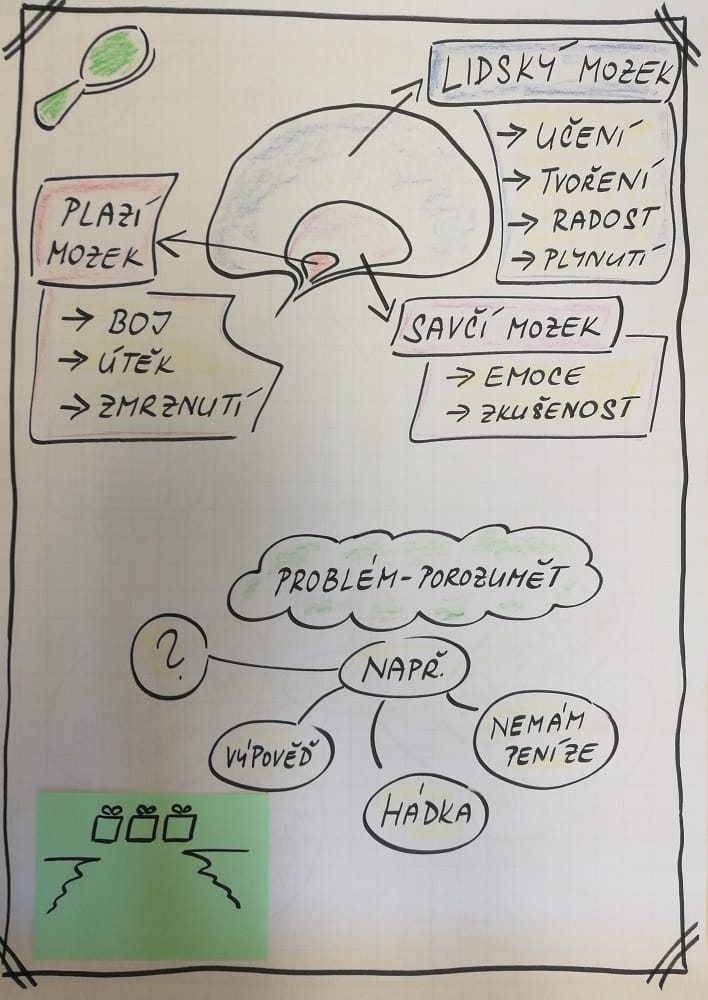 LIDSKÝ MOZEK
→ UČENÍ
→ TVOŘENÍ
→ RADOST
→ PLYNUTÍ
PLAZÍ
MOZEK
→ BOJ
→ ÚTĚK
→ ZMRZNUTÍ
SAVČÍ MOZEK
→ EMOCE
→ ZKUŠENOST
PROBLÉM-POROZUMĚT
?
NAPŘ.
VÝPOVĚĎ
HÁDKA
NEMÁM
PENÍZE